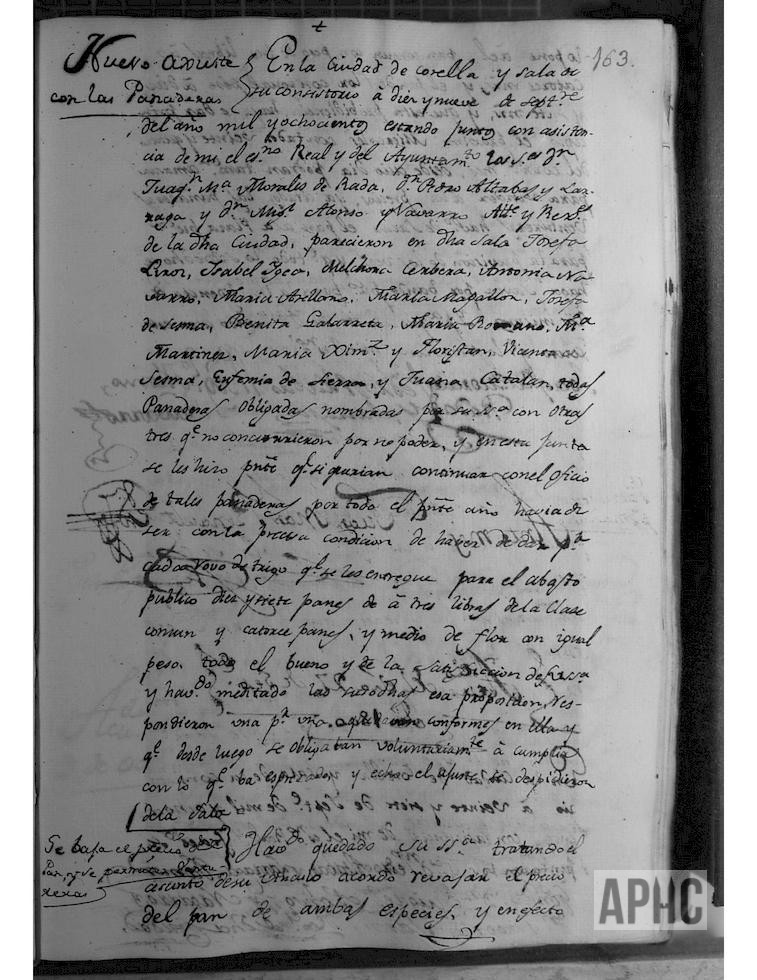 +
163.
Nuevo axuste
con las Panaderas
En la Ciudad de Corella y Sala de
su consistorio à diez y nueve de sept.re
del año mil y ochocientos estando juntos con asisten-
cia de mi el es.no Real y del Ayuntam.to los S.es Dn
Juaq.n M.a Morales de Rada, Dn Pedro Altabas y Lar-
raga y Dn Mig.l Alonso y Navarro Alc.e y Rex.s
de la dha Ciudad, parecieron en dha Sala Josefa
Liroz, Isabel Igea, Melchora Cerbera, Antonia Na-
varro, Maria Arellano, Maria Magallon, Josefa
de Sesma, Benita Galarreta, Maria Romano, M.a
Martinez, Maria Xim.z y Floristan, Vicenta
Sesma, Eufemia de Sierra, y Juana Catalan, todas
Panaderas obligadas nombradas por su S.a con otras
tres q.e no concurrieron por no poder, y en esta Junta
se les hizo pnte q.e si querian continuar con el oficio
de tales panaderas por todo el pnte año havia de
ser con la precisa condicion de haver de dar p.r
cada rovo de trigo q.e se les entregue para el abasto
publico diez y siete panes de à tres libras de la clase
comun y catorce panes, y medio de flor con igual
peso, todo el bueno y de la satisfaccion de su s.a
y hav.do meditado las susodhas esa proposicion, Res-
pondieron una p.r una que conformes en ella y
q.e desde luego se obligaban voluntariam.te à cumplir
con lo q.e ba espresado y echo el ajuste se despidieron
de la Sala
Se baja el precio del
Pan, y se
Hav.do quedado su SS.a tratando el
asunto de su Vinculo acordo revajar el precio
del pan de ambas especies, y en efecto
APHC